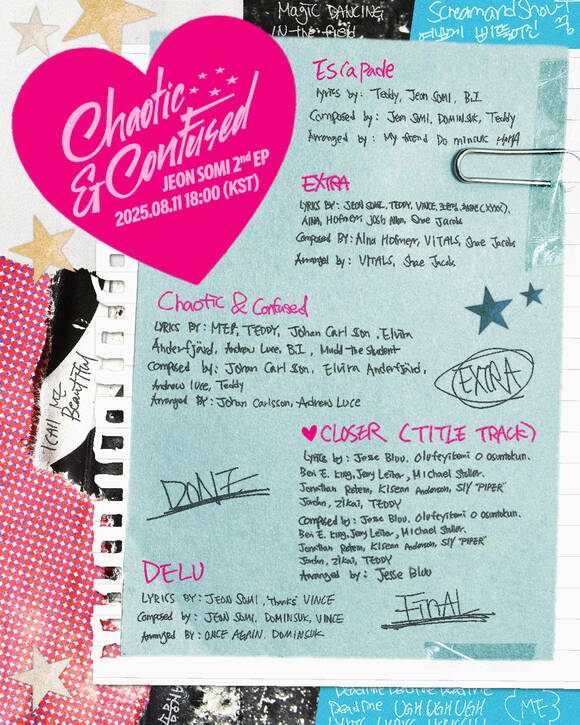 Magic DANCING
IN the field
Screamandshout
Chaotic
& Confused
JEON SOMI 2nd EP
2025.08.11 18:00 (KST)
Escapade
Lyrics by: Teddy, Jeon SOMI, B.I
Composed by: Jeon SOMI, DOMINSUK, Teddy
Arranged by: My friend Do minsuk HAHA
EXTRA
LYRICS BY: JEON SOMI, TEDDY, VINCE,
AINA, Hofmeyr, Shae Jacobs
Composed BY: AIna Hofmeyr, VITALS, Shae Jacobs
Arranged by: VITALS, Shae Jacobs
Chaotic & Confused
LYRICS BY: TEDDY, Johan Carlsson, Elvira
Anderfjärd, Andrew Luce, B.I, Mudd the student
Composed by: Johan Carlsson, Elvira Anderfjärd,
Andrew luce, Teddy
Arranged BY: Johan Carlsson, Andrew Luce
I CAll ME
Beautiful
EXTRA
♥ CLOSER (TITLE TRACK)
Lyrics by: Jesse Bluu, Olufeyikemi O Osuntokun.
Ben E. King, Jerry Leiber, Michael Stoller.
Jonathan Rotem, Kisean Anderson, SLY "PIPER"
Jordan, ZIKAI, TEDDY
Composed by: Jesse Bluu, Olufeyikemi O Osuntokun.
Ben E. King, Jerry Leiber, Michael Stoller.
Jonathan Rotem, Kisean Anderson, SLY "PIPER"
Jordan, ZIKAI, TEDDY
Arranged by: Jesse Bluu
DONE
DELU
LYRICS BY: JEON SOMI, thanks VINCE
Composed by: JEON SOMI, DOMINSUK, VINCE
Arranged by: ONCE AGAIN. DOMINSUK
FINAL
Deadline UGH UGH UGH
{ME}